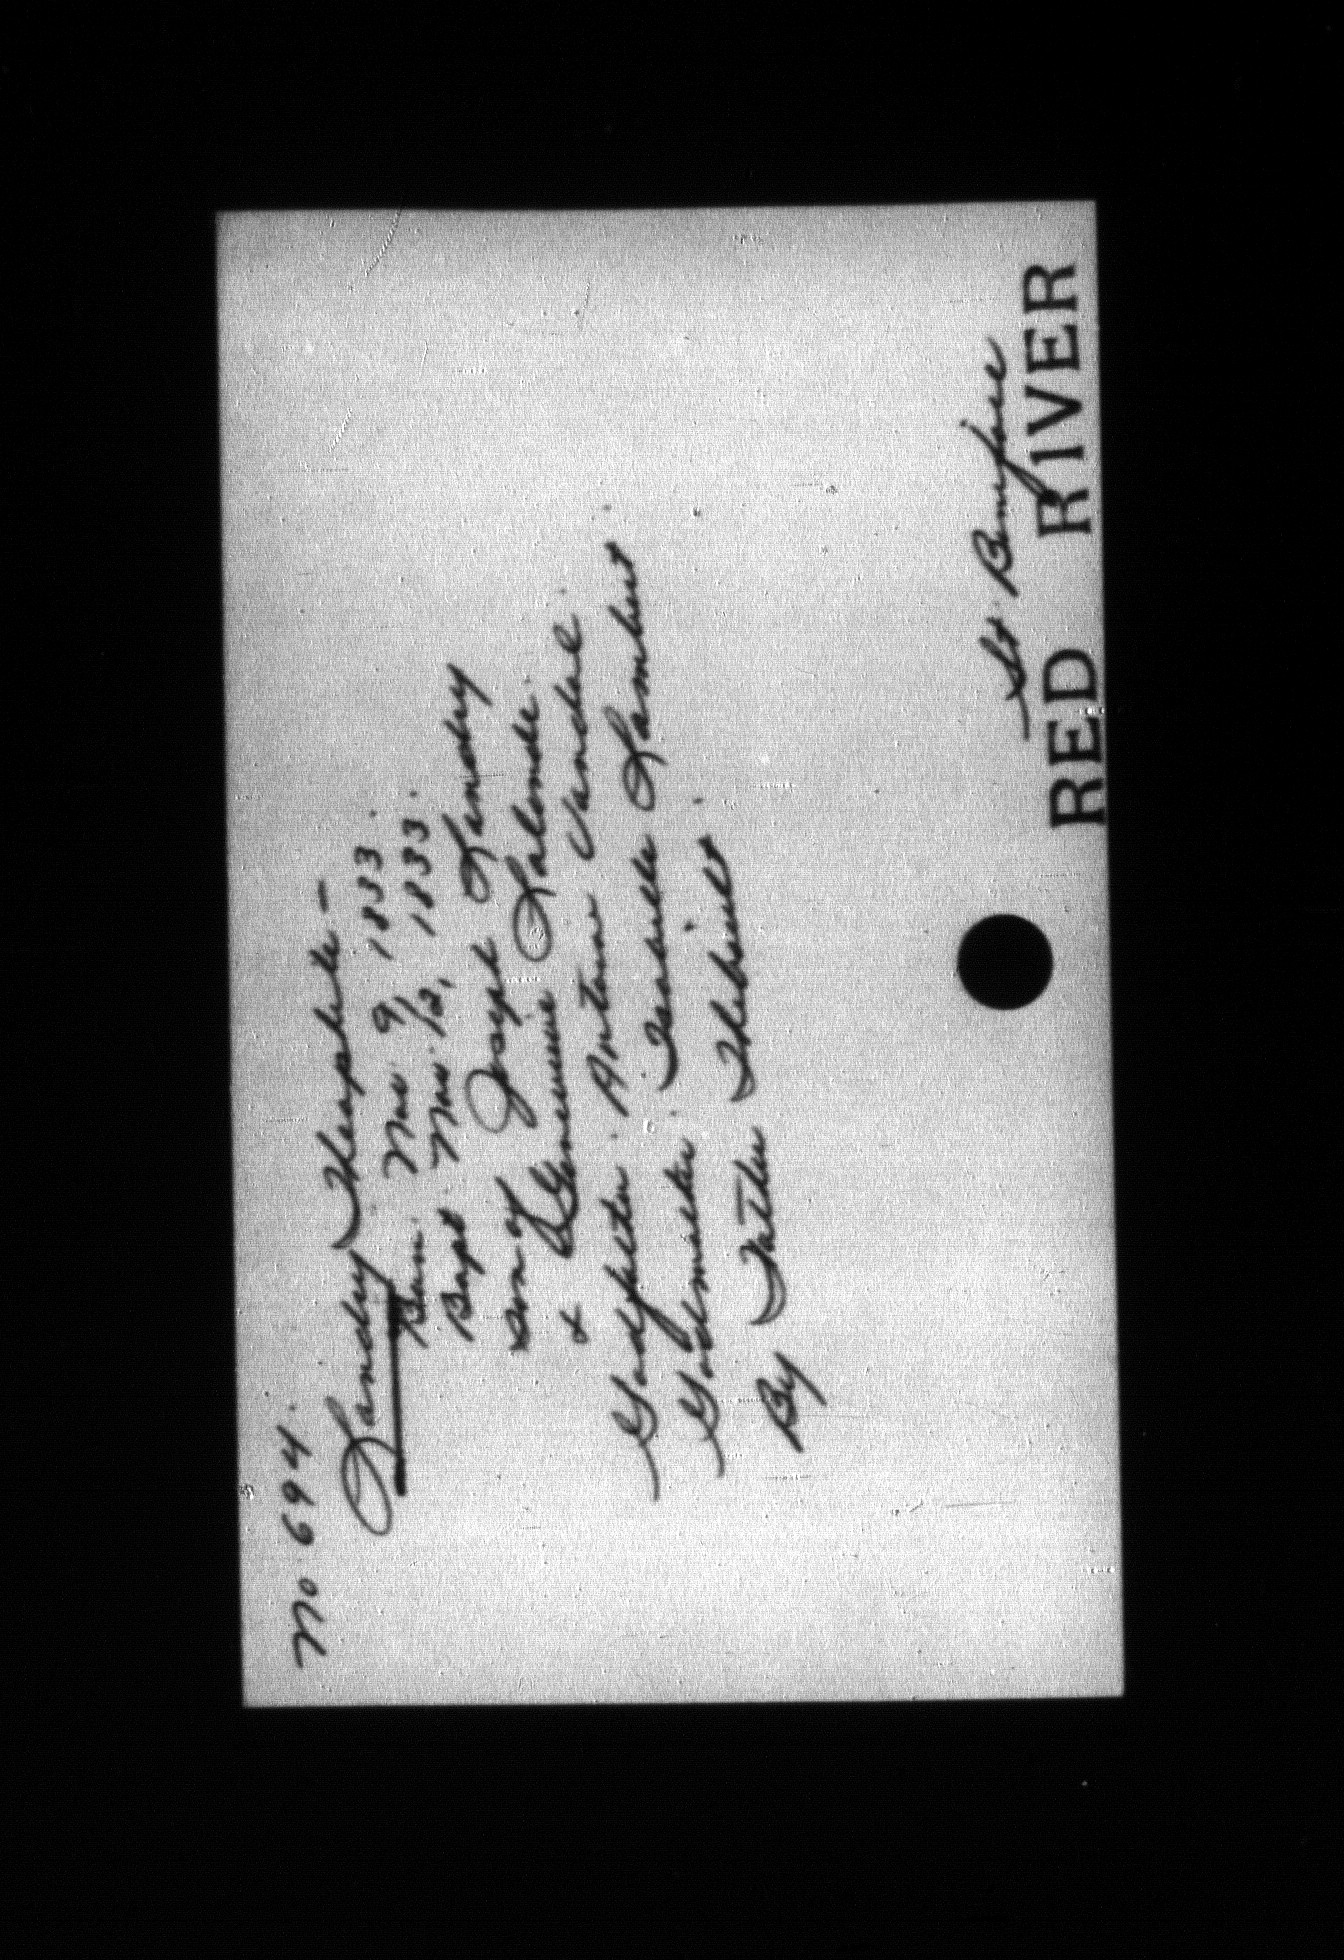 No 694.
Landry Theophile -
Born. Nov 9, 1833.
Bapt. Nov. 12, 1833.
son of Joseph Landry
& Genevieve Lalonde.
Godfather. Antoine Vandal.
Godmother. Isabelle Lambert.
By Father Thibault.
St. Boniface
RED RIVER